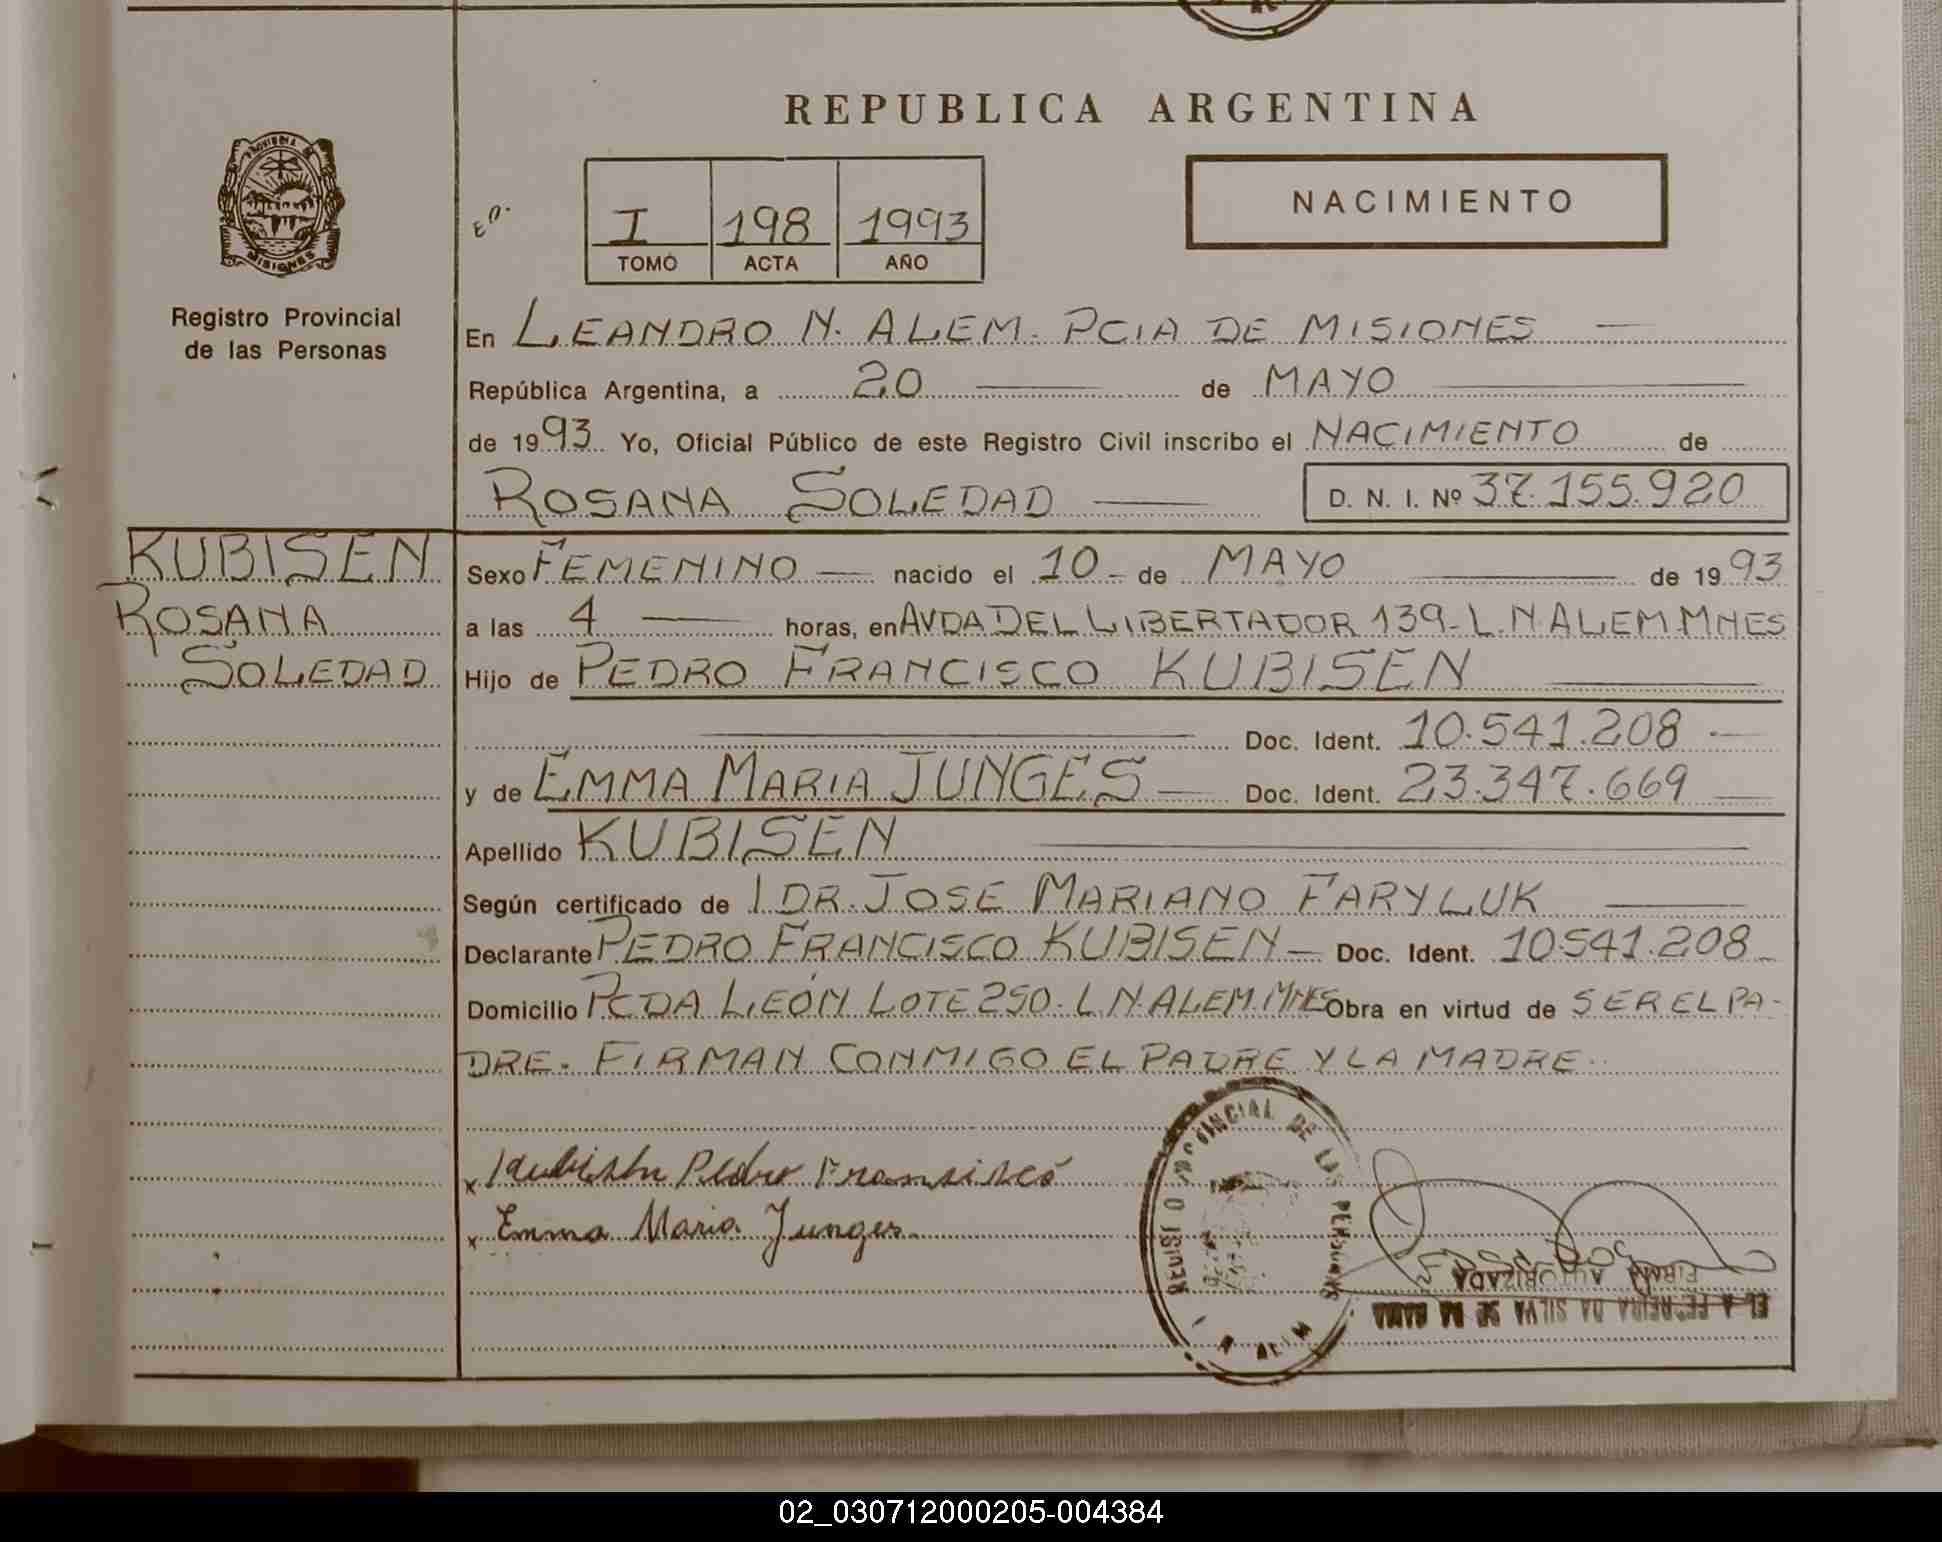 REPUBLICA ARGENTINA
NACIMIENTO
I 198 1993
TOMO ACTA AÑO
MISIONES
Registro Provincial
de las Personas
En LEANDRO N. ALEM. PCIA DE MISIONES
República Argentina, a 20 de MAYO
de 1993 Yo, Oficial Público de este Registro Civil inscribo el NACIMIENTO de
ROSANA SOLEDAD D. N. I. Nº 37.155.920
KUBISEN
ROSANA
SOLEDAD
Sexo FEMENINO nacido el 10 de MAYO de 1993
a las 4 horas, en AVDA DEL LIBERTADOR 139- L.N.ALEM.MNES
Hijo de PEDRO FRANCISCO KUBISEN
Doc. Ident. 10.541.208
y de EMMA MARIA JUNGES Doc. Ident. 23.347.669
Apellido KUBISEN
Según certificado de I DR. JOSE MARIANO FARYLUK
Declarante PEDRO FRANCISCO KUBISEN Doc. Ident. 10.541.208
Domicilio PCDA LEÓN LOTE 250. L.N.ALEM.MNES Obra en virtud de SER EL PA-
DRE. FIRMAN CONMIGO EL PADRE Y LA MADRE.
x Kubisen Pedro Fransisco
x Emma Maria Junges.
PROVINCIAL DE LAS PERSONAS
FIRMA AUTORIZADA
DA SILVA DE
02_030712000205-004384